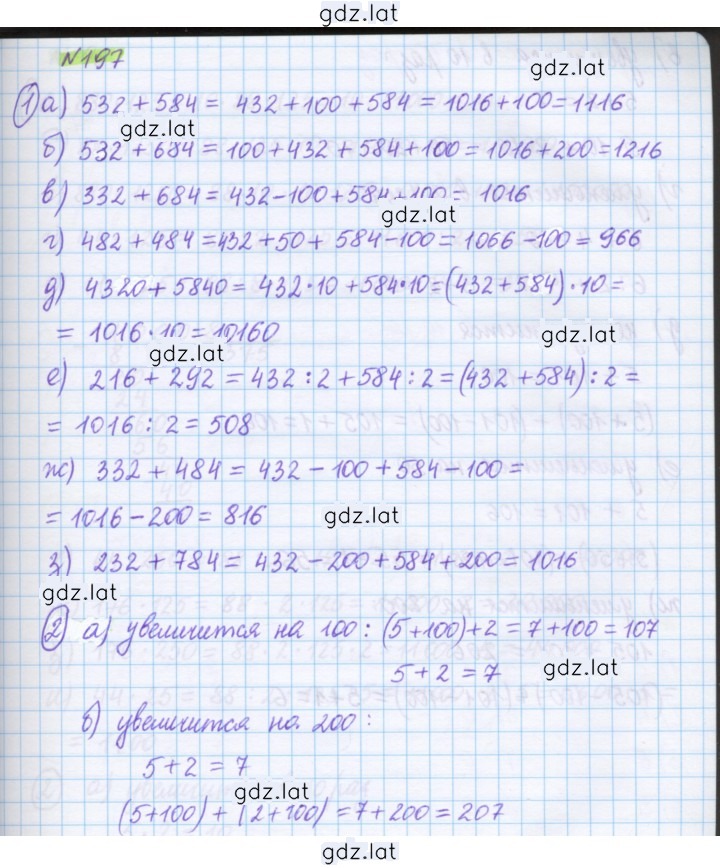 gdz.lat
№197
gdz.lat
① а) 532 + 584 = 432 + 100 + 584 = 1016 + 100 = 1116
gdz.lat
б) 532 + 684 = 100 + 432 + 584 + 100 = 1016 + 200 = 1216
в) 332 + 684 = 432 - 100 + 584 + 100 = 1016
gdz.lat
г) 482 + 484 = 432 + 50 + 584 - 100 = 1066 - 100 = 966
д) 4320 + 5840 = 432 · 10 + 584 · 10 = (432 + 584) · 10 =
= 1016 · 10 = 10160
gdz.lat
gdz.lat
е) 216 + 292 = 432 : 2 + 584 : 2 = (432 + 584) : 2 =
= 1016 : 2 = 508
ж) 332 + 484 = 432 - 100 + 584 - 100 =
= 1016 - 200 = 816
gdz.lat
з) 232 + 784 = 432 - 200 + 584 + 200 = 1016
gdz.lat
② а) увеличится на 100 : (5 + 100) + 2 = 7 + 100 = 107
5 + 2 = 7
gdz.lat
б) увеличится на 200 :
5 + 2 = 7
gdz.lat
(5 + 100) + (2 + 100) = 7 + 200 = 207
gdz.lat